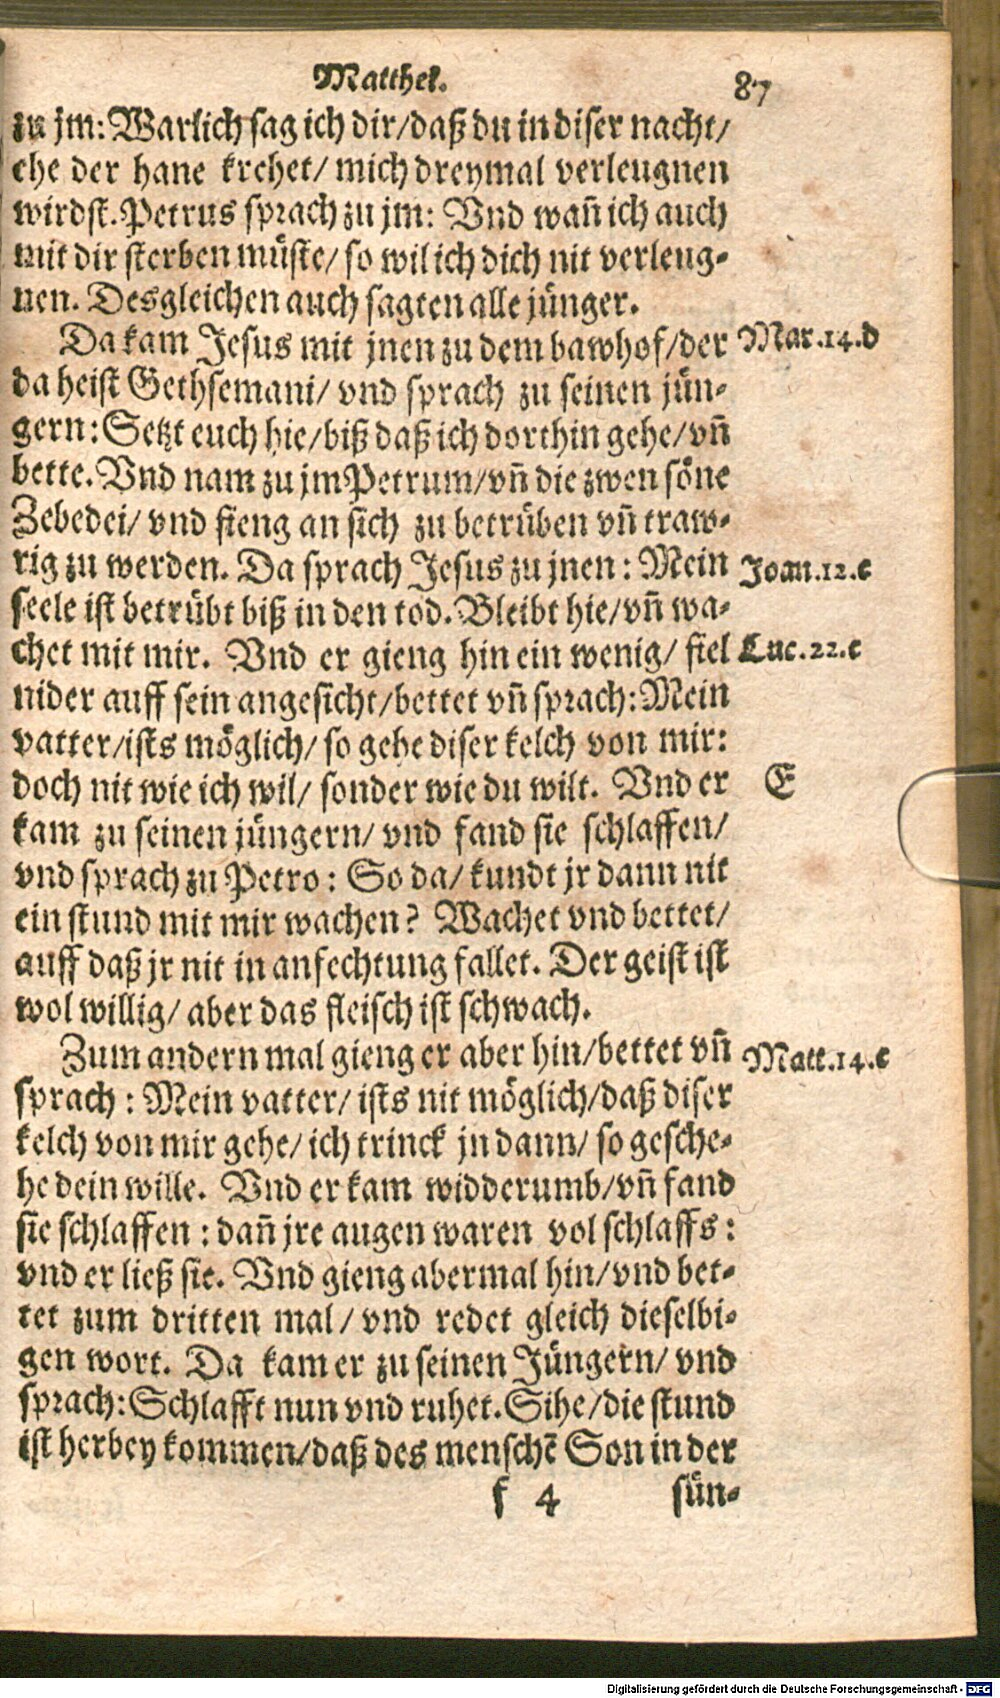 Matthei.
87
zu jm: Warlich sag ich dir/daß du in diser nacht/
ehe der hane krehet/ mich dreymal verleugnen
wirdst. Petrus sprach zu jm: Vnd wañ ich auch
mit dir sterben müste/ so wil ich dich nit verleug-
nen. Desgleichen auch sagten alle jünger.
Da kam Jesus mit jnen zu dem bawhof/der
Mar.14.d
da heist Gethsemani/ vnd sprach zu seinen jün-
gern: Setzt euch hie/biß daß ich dorthin gehe/vñ
bette. Vnd nam zu jm Petrum/vñ die zwen söne
Zebedei/ vnd fieng an sich zu betrüben vñ traw-
rig zu werden. Da sprach Jesus zu jnen: Mein
Joan.12.c
seele ist betrübt biß in den tod. Bleibt hie/vñ wa-
chet mit mir. Vnd er gieng hin ein wenig/ fiel
Luc.22.c
nider auff sein angesicht/bettet vñ sprach: Mein
vatter/ists möglich/ so gehe diser kelch von mir:
doch nit wie ich wil/ sonder wie du wilt. Vnd er
E
kam zu seinen jüngern/ vnd fand sie schlaffen/
vnd sprach zu Petro: So da/ kundt jr dann nit
ein stund mit mir wachen? Wachet vnd bettet/
auff daß jr nit in anfechtung fallet. Der geist ist
wol willig/ aber das fleisch ist schwach.
Zum andern mal gieng er aber hin/bettet vñ
Matt.14.c
sprach: Mein vatter/ ists nit möglich/daß diser
kelch von mir gehe/ ich trinck jn dann/ so gesche-
he dein wille. Vnd er kam widderumb/vñ fand
sie schlaffen: dañ jre augen waren vol schlaffs:
vnd er ließ sie. Vnd gieng abermal hin/vnd bet-
tet zum dritten mal/ vnd redet gleich dieselbi-
gen wort. Da kam er zu seinen Jüngern/ vnd
sprach: Schlafft nun vnd ruhet. Sihe/die stund
ist herbey kommen/daß des menschẽ Son in der
f 4
sün-
Digitalisierung gefördert durch die Deutsche Forschungsgemeinschaft - DFG